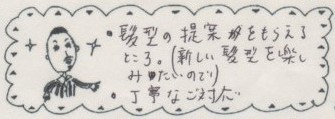 ・髪型の提案がをもらえる
ところ。(新しい髪型を楽し
みたいので)
・丁寧なご対応